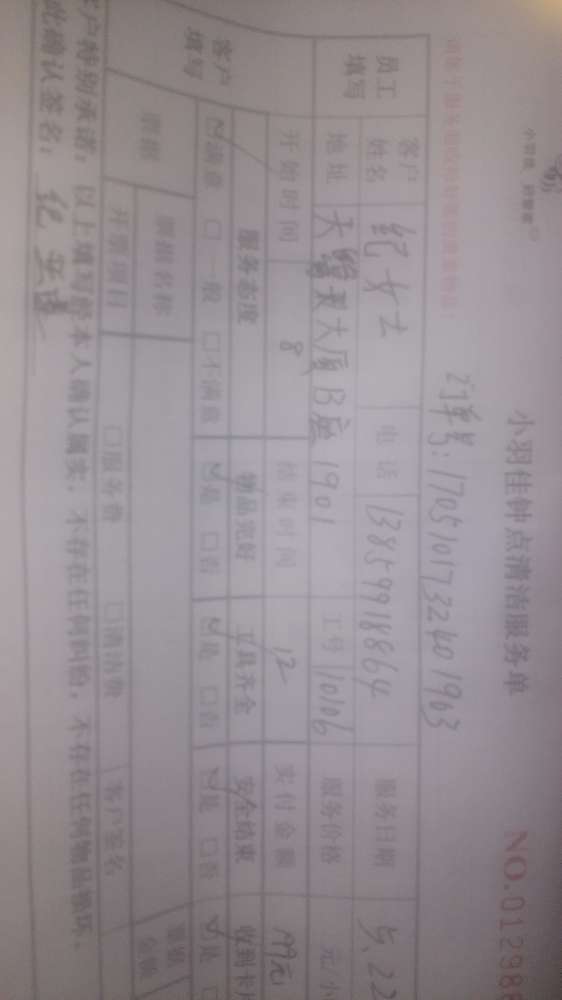 小羽佳钟点清洁服务单 NO.01298
订单号:1705101732401963
员工填写
客户姓名 纪女士 电话 13859918864 服务日期 5.22
地址 大厦B座1901 工号 10106 服务价格 元/小
客户填写
开始时间 8 结束时间 12 实付金额
服务态度 物品完好 工具齐全 安全结束 收到卡
☑满意 □一般 □不满意 ☑是 □否 ☑是 □否 ☑是 □否 ☑是 □
票据 票据名称
开票项目 □服务费 □清洁费 客户签名
客户特别承诺:以上填写经本人确认属实,不存在任何纠纷,不存在任何物品损坏。
此确认签名: